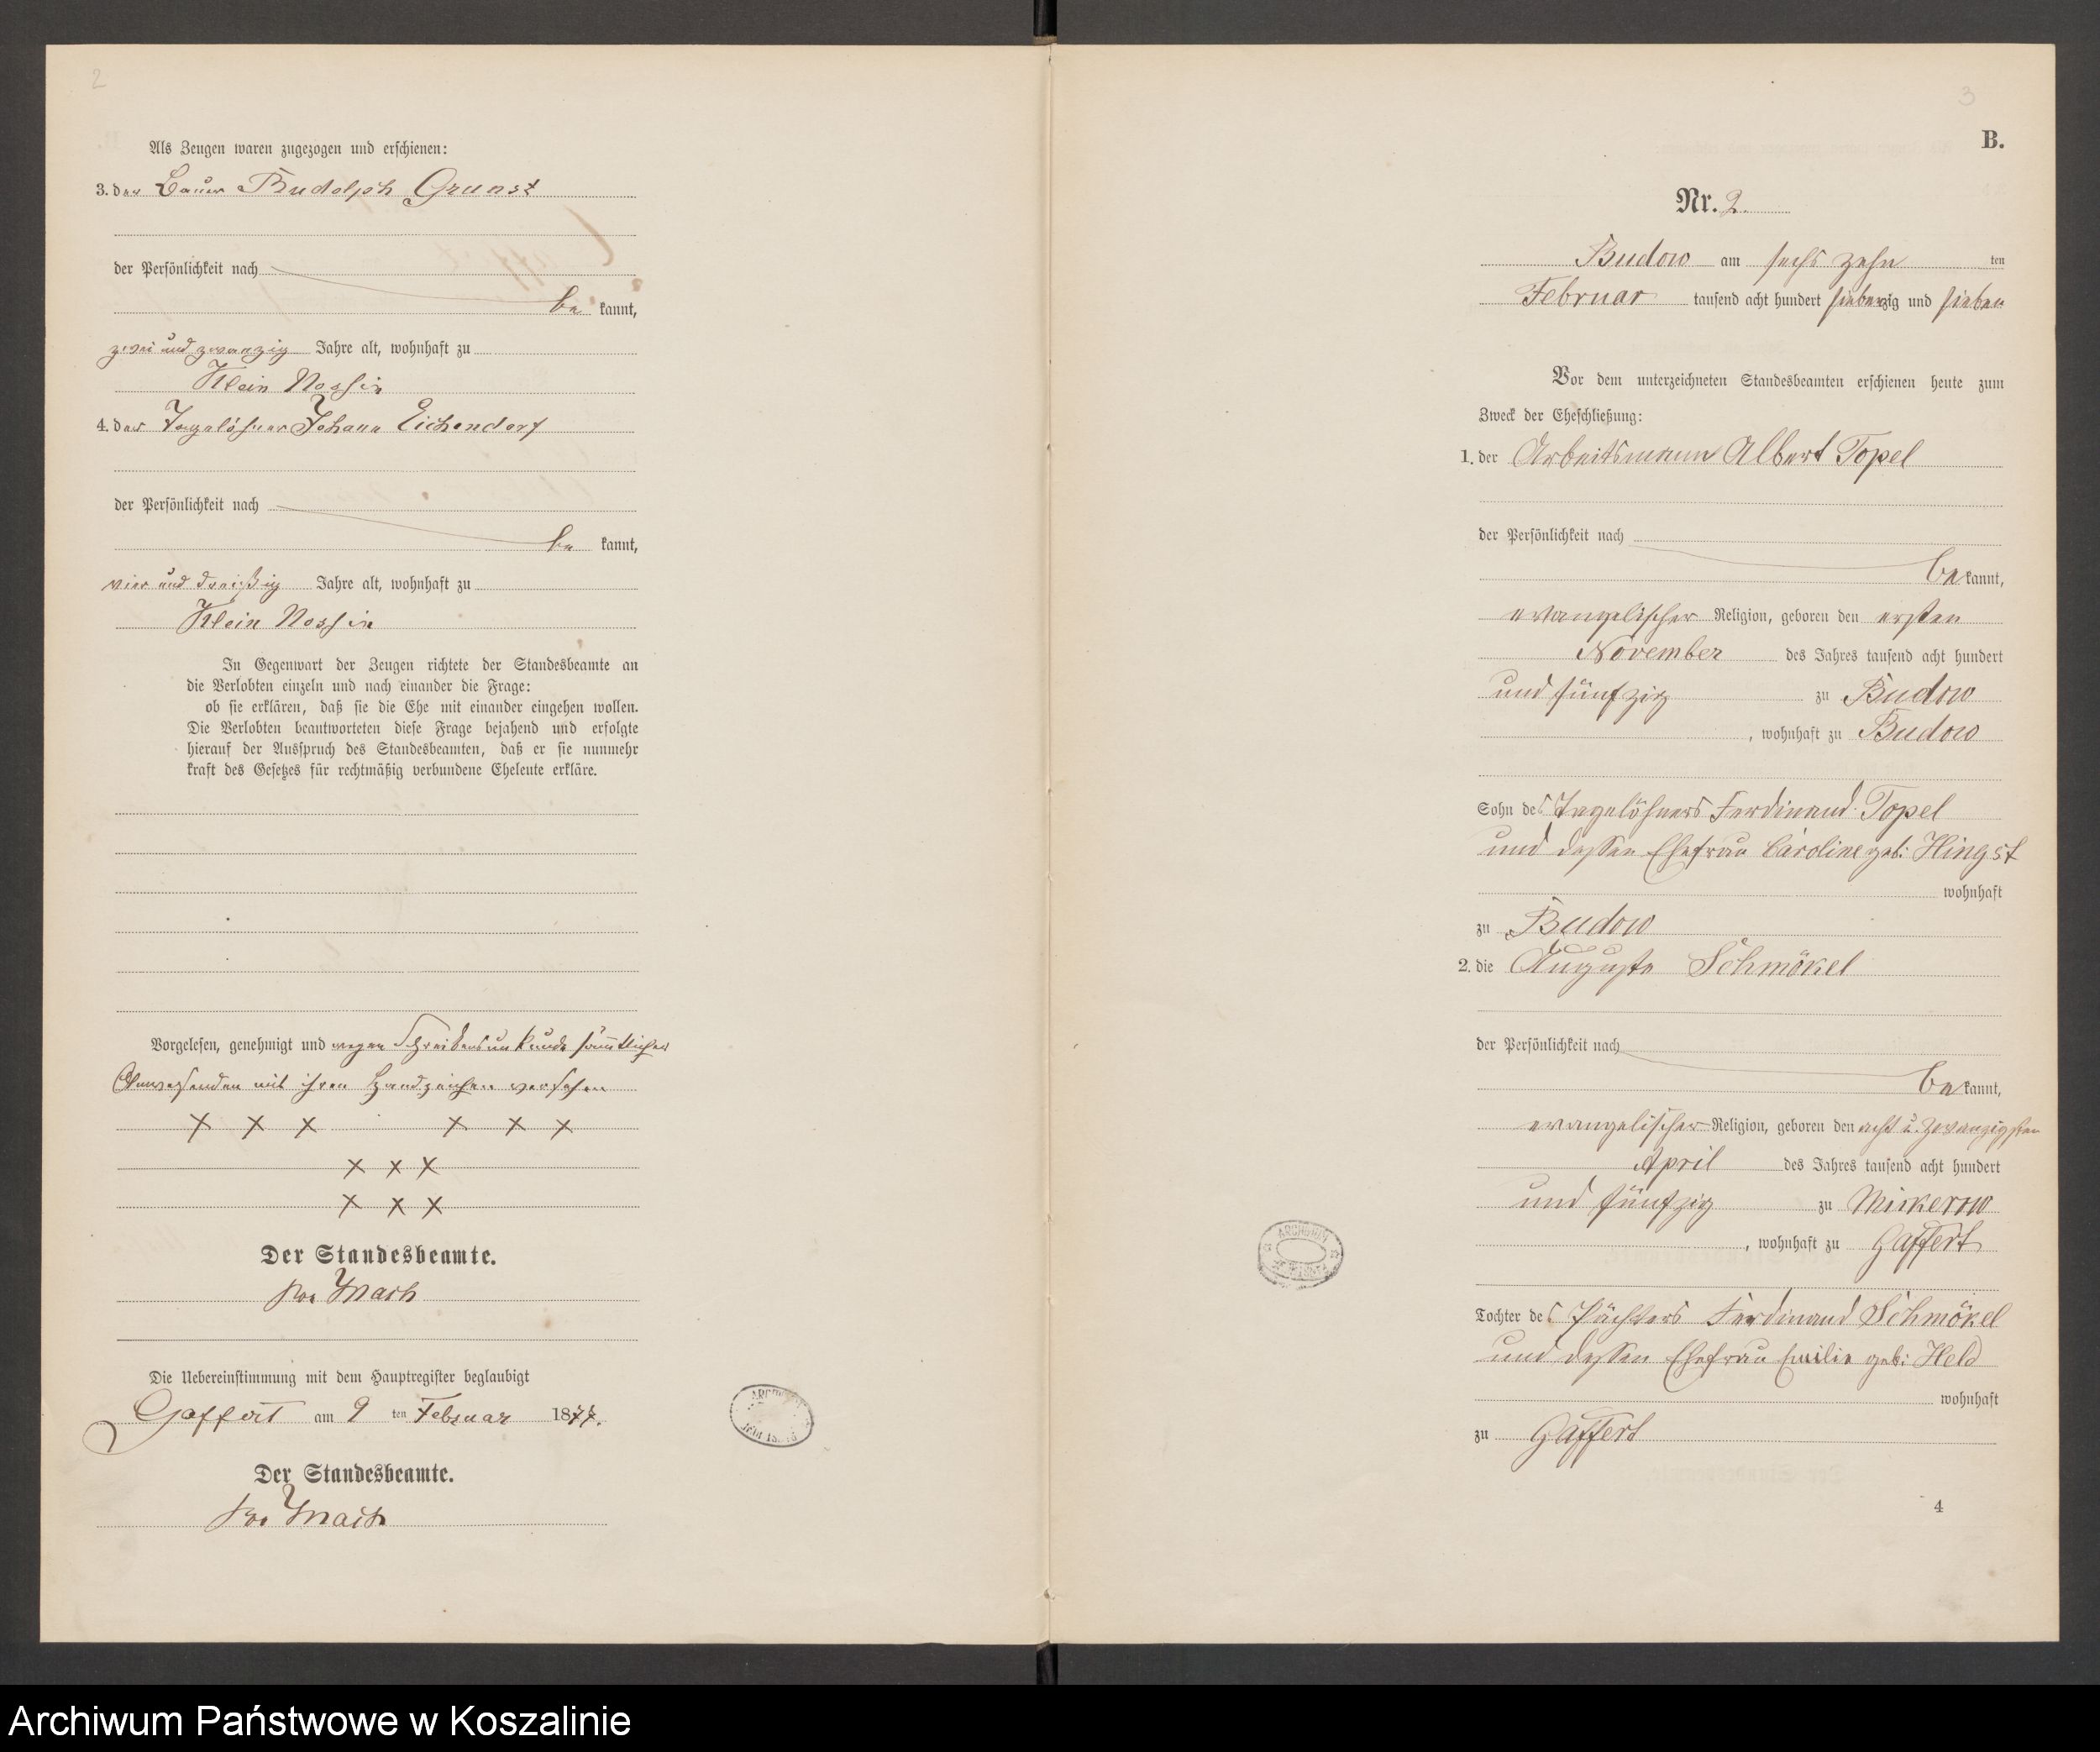 2
Als Zeugen waren zugezogen und erschienen:
3. der Bauer Rudolph Grunst
der Persönlichkeit nach
be kannt,
zwei und zwanzig Jahre alt, wohnhaft zu
Klein Nossin
4. der Tagelöhner Johann Eichendorf
der Persönlichkeit nach
be kannt,
vier und dreißig Jahre alt, wohnhaft zu
Klein Nossin
In Gegenwart der Zeugen richtete der Standesbeamte an
die Verlobten einzeln und nach einander die Frage:
ob sie erklären, daß sie die Ehe mit einander eingehen wollen.
Die Verlobten beantworteten diese Frage bejahend und erfolgte
hierauf der Ausspruch des Standesbeamten, daß er sie nunmehr
kraft des Gesetzes für rechtmäßig verbundene Eheleute erkläre.
Vorgelesen, genehmigt und wegen Schreibensunkunde sämmtlicher
Anwesenden mit ihren Handzeichen versehen
X X X X X X
X X X
X X X
Der Standesbeamte.
Mach
Die Uebereinstimmung mit dem Hauptregister beglaubigt
Gaffert am 9 ten Februar 1877.
Der Standesbeamte.
Mach
3
B.
Nr. 2.
Budow am sechs zehn ten
Februar tausend acht hundert siebenzig und sieben
Vor dem unterzeichneten Standesbeamten erschienen heute zum
Zweck der Eheschließung:
1. der Arbeitsmann Albert Topel
der Persönlichkeit nach
be kannt,
evangelischer Religion, geboren den ersten
November des Jahres tausend acht hundert
und fünfzig zu Budow
, wohnhaft zu Budow
Sohn des Tagelöhners Ferdinand Topel
und dessen Ehefrau Caroline geb: Hingst
wohnhaft
zu Budow
2. die Auguste Schmökel
der Persönlichkeit nach
be kannt,
evangelischer Religion, geboren den acht u. zwanzigsten
April des Jahres tausend acht hundert
und fünfzig zu Mikerow
, wohnhaft zu Gaffert
Tochter des Pächters Ferdinand Schmökel
und dessen Ehefrau Emilie geb: Held
wohnhaft
zu Gaffert
4
Archiwum Państwowe w Koszalinie